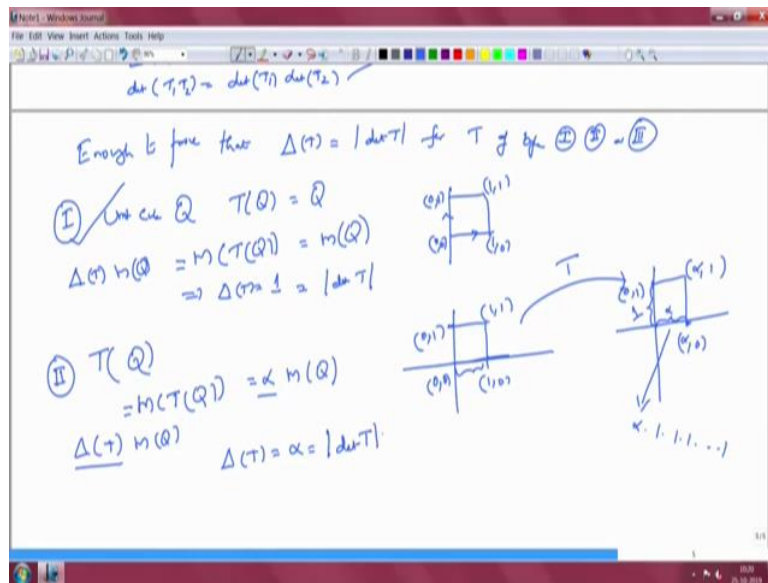 Note1 - Windows Journal
File Edit View Insert Actions Tools Help
det (T₁T₂) = det(T₁) det(T₂)
Enough to prove that Δ(T) = |det T| for T of type I II or III
I Unit cube Q T(Q) = Q
Δ(T) m(Q) = m(T(Q)) = m(Q)
⇒ Δ(T) = 1 = |det T|
(1,1)
(1,0)
II T(Q)
= m(T(Q)) = α m(Q)
Δ(T) m(Q)
Δ(T) = α = |det T|
(0,1) (1,1)
(0,0) (1,0)
T
(0,1) (α,1)
1 α
(α,0)
α. 1. 1. 1. ...1
5/5
5
10:20
25-10-2019